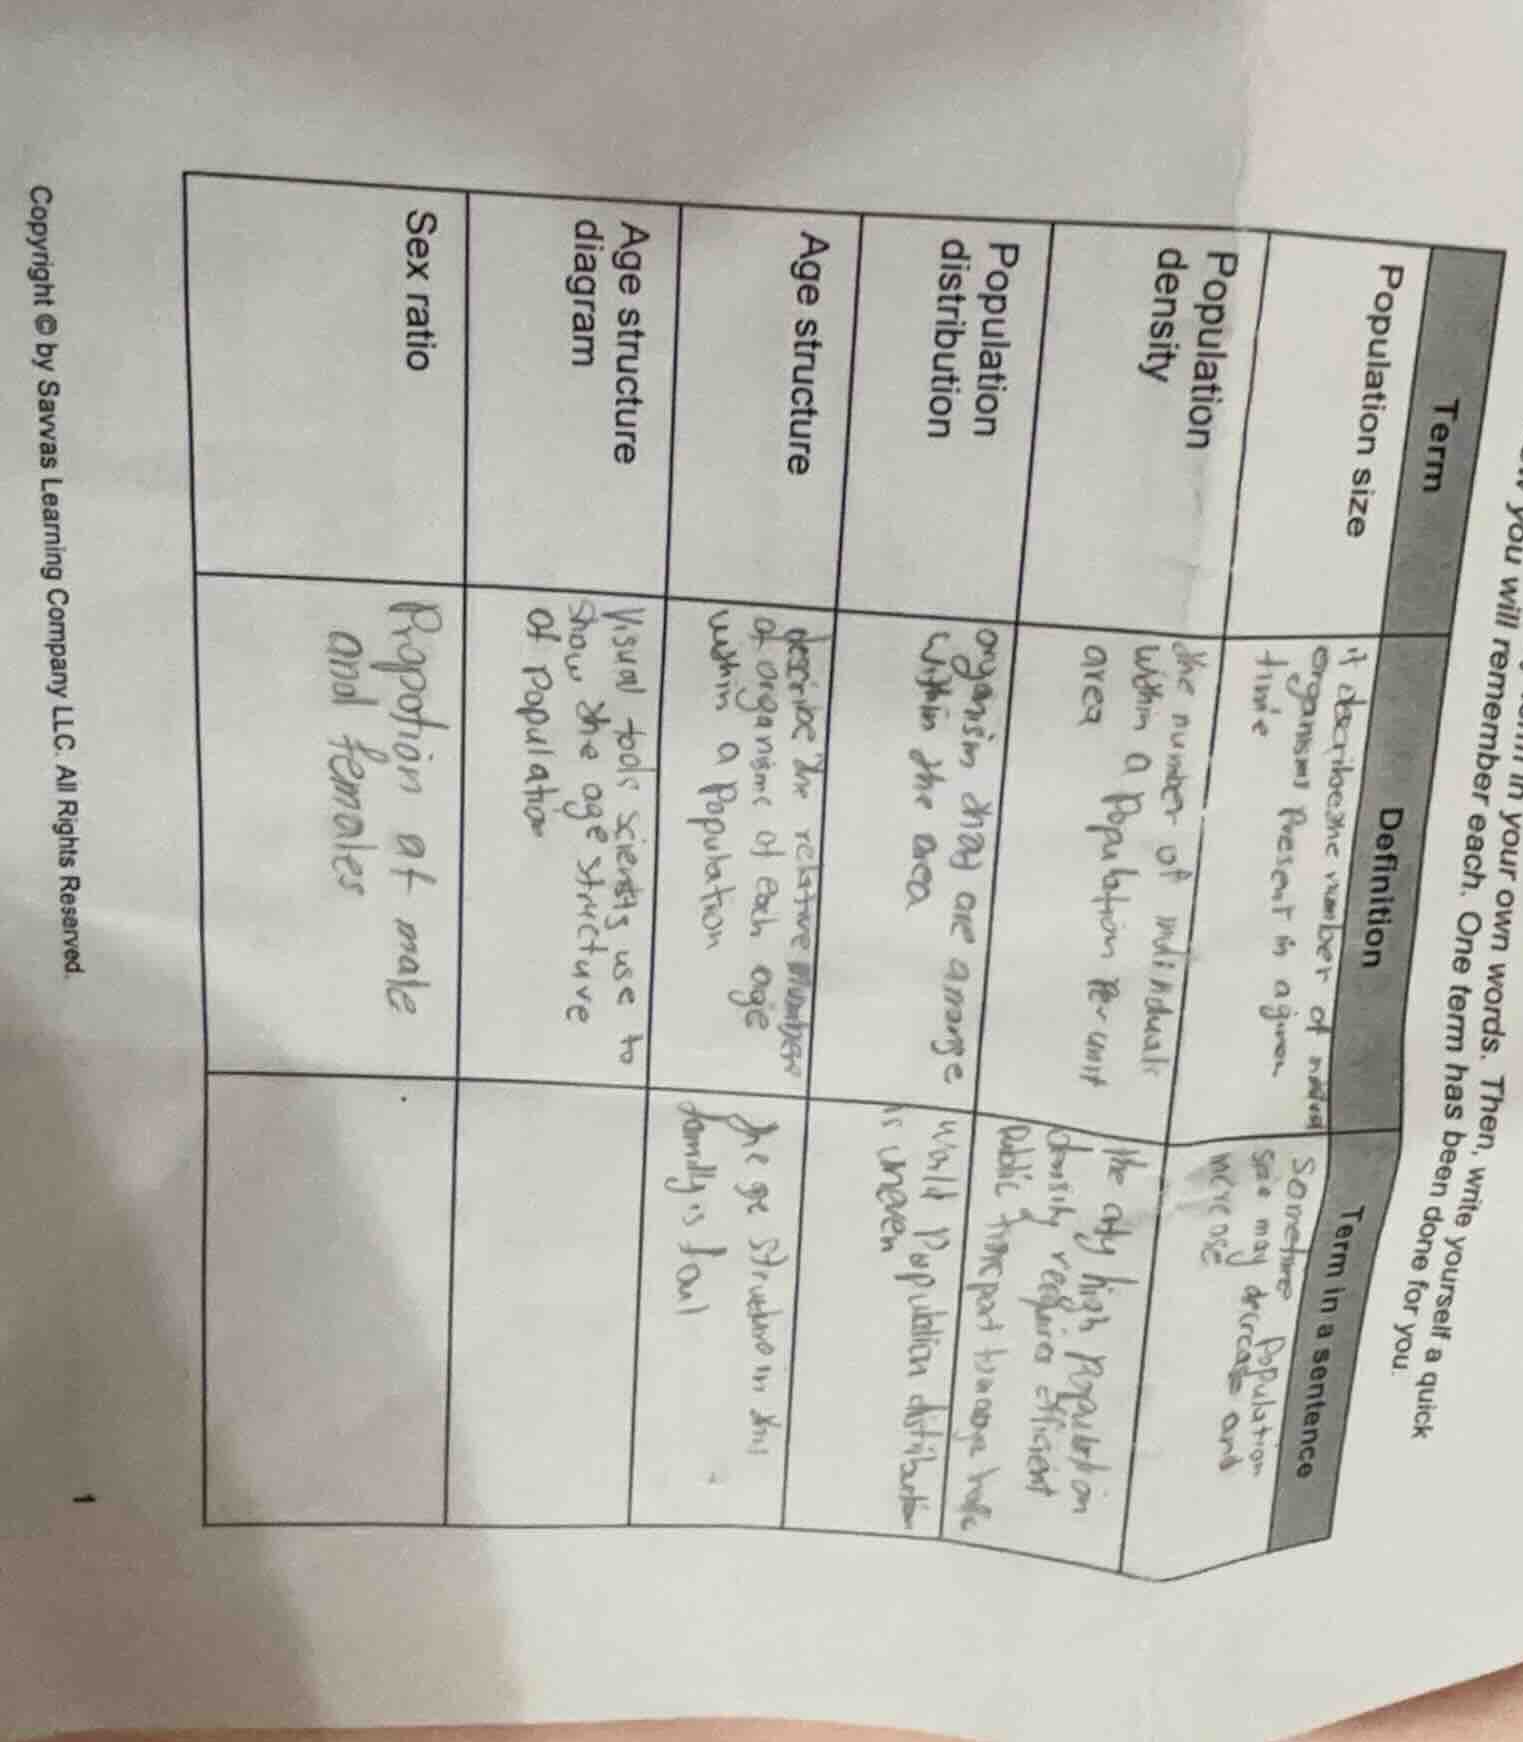 in your own words. Then, write yourself a quick
you will remember each. One term has been done for you.
Term
Definition
Term in a sentence
Population size
it describe the number of
organisms Present in a given
time
Sometime Population
size may decrease and
increase
Population
density
the number of individuals
within a Population Per unit
area
the city high Population
density requires efficient
Public transport to manage
Population
distribution
organism that are arrange
within the area
world Population distribution
is uneven
Age structure
describe the relative numbers
of organisms of each age
within a Population
the age structure in this
family is
Age structure
diagram
Visual tools scientists use to
show the age structure
of Population
Sex ratio
Propotion of male
and females
Copyright © by Savvas Learning Company LLC. All Rights Reserved.
1